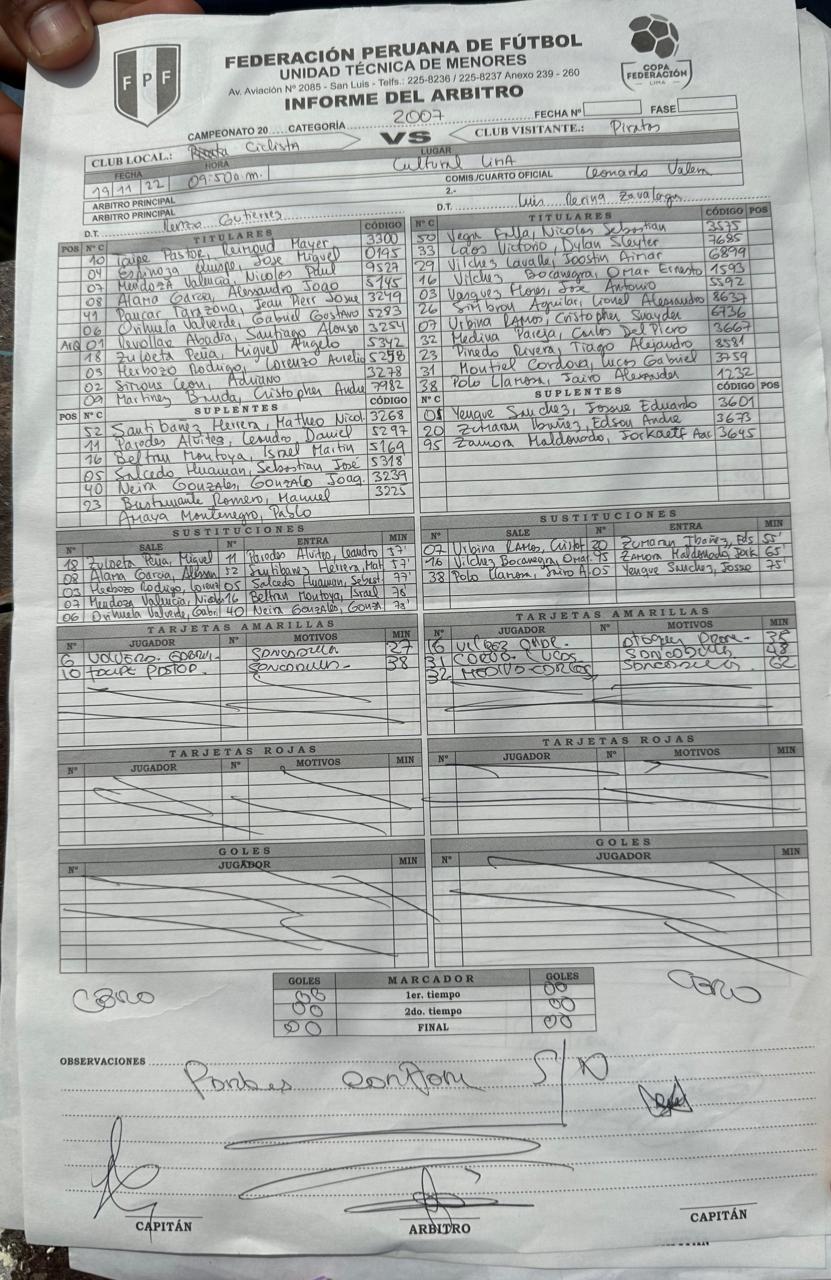 FPF
FEDERACIÓN PERUANA DE FÚTBOL
UNIDAD TÉCNICA DE MENORES
Av. Aviación Nº 2085 - San Luis - Telfs.: 225-8236 / 225-8237 Anexo 239 - 260
INFORME DEL ARBITRO
COPA FEDERACIÓN
LIMA
CAMPEONATO 20 CATEGORÍA 2007 FECHA Nº FASE
CLUB LOCAL.: Ciclista VS CLUB VISITANTE.: Piratas
FECHA HORA LUGAR
19 11 22 09:50a.m. Cultural Lima COMIS./CUARTO OFICIAL Leonardo
ARBITRO PRINCIPAL 2.-
ARBITRO PRINCIPAL
D.T. Renzo Gutierrez D.T. Luis Zavalaga
TITULARES
POS Nº C CÓDIGO
10 Taipe Pastor, Mayer 3300
04 Espinoza Quispe, Jose Miguel 0195
07 Mendoza Valencia, Nicolas Paul 9527
08 Alama Garcia, Alessandro Joao 5145
41 Paucar Tarazona, Jean Pierr Josue 3249
06 Orihuela Valverde, Gabriel Gustavo 5283
ARQ 01 Revollar Abadia, Santiago Alonso 3254
18 Zuloeta Peña, Miguel Angelo 5342
03 Herbozo Rodrigo, Lorenzo Aurelio 5258
02 Leon, Adriano 3278
09 Martinez Cristopher Andre 7982
SUPLENTES
POS Nº C CÓDIGO
52 Santibañez Herrera, Matheo Nicol 3268
11 Paredes Alvites, Leandro Daniel 5297
16 Beltran Montoya, Israel Martin 5169
05 Salcedo Huaman, Sebastian José 5318
40 Neira Gonzales, Gonzalo Joaq. 3239
23 Bustamante Romero, Manuel 3225
Amaya Montenegro, Pablo
TITULARES
Nº C CÓDIGO POS
50 Vega Nicolas Sebastian 3575
33 Laos Victorio, Dylan Sleyter 7685
29 Vilchez Lavalle, Joostin 6899
16 Vilchez Bocanegra, Omar Ernesto 1593
03 Vasquez Flores, Jose Antonio 5592
26 Simbron Aguilar, Lionel Alessandro 8637
07 Urbina Ramos, Cristopher Snayder 6736
32 Medina Pareja, Carlos Del Piero 3667
23 Pinedo Rivera, Tiago Alejandro 8581
31 Montiel Cordova, Lucas Gabriel 3759
38 Polo Llanora, Jairo Alexander 1232
SUPLENTES
Nº C CÓDIGO POS
05 Yenque Sanchez, Josue Eduardo 3601
20 Zumaran Ibañez, Edson Andre 3673
95 Zamora Maldonado, 3645
SUSTITUCIONES
Nº SALE Nº ENTRA MIN
18 Zuloeta Peña, Miguel 11 Paredes Alvites, Leandro 37'
08 Alama Garcia, Alessan 52 Santibanez Herrera, Mat 57'
03 Herbozo Rodrigo, Loren 05 Salcedo Huaman, Sebast 77'
07 Mendoza Valencia, Nicolas 16 Beltran Montoya, Israel 78'
06 Orihuela Valverde, Gabri 40 Neira Gonzales, Gonza 78'
SUSTITUCIONES
Nº SALE Nº ENTRA MIN
07 Urbina Ramos, Cristof 20 Zumaran Ibañez, Eds 55'
16 Vilchez Bocanegra, Omar 95 Zamora Maldonado 65'
38 Polo Llanora, Jairo A. 05 Yenque Sanchez, Josue 75'
TARJETAS AMARILLAS
Nº JUGADOR Nº MOTIVOS MIN
6 27
10 Taipe Pastor 38
TARJETAS AMARILLAS
Nº JUGADOR Nº MOTIVOS MIN
16 35
31 Lucas 48
32 62
TARJETAS ROJAS
Nº JUGADOR Nº MOTIVOS MIN
TARJETAS ROJAS
Nº JUGADOR Nº MOTIVOS MIN
GOLES
Nº JUGADOR MIN
GOLES
Nº JUGADOR MIN
GOLES MARCADOR GOLES
CERO 00 1er. tiempo 00 CERO
00 2do. tiempo 00
00 FINAL 00
OBSERVACIONES S/N
CAPITÁN ARBITRO CAPITÁN